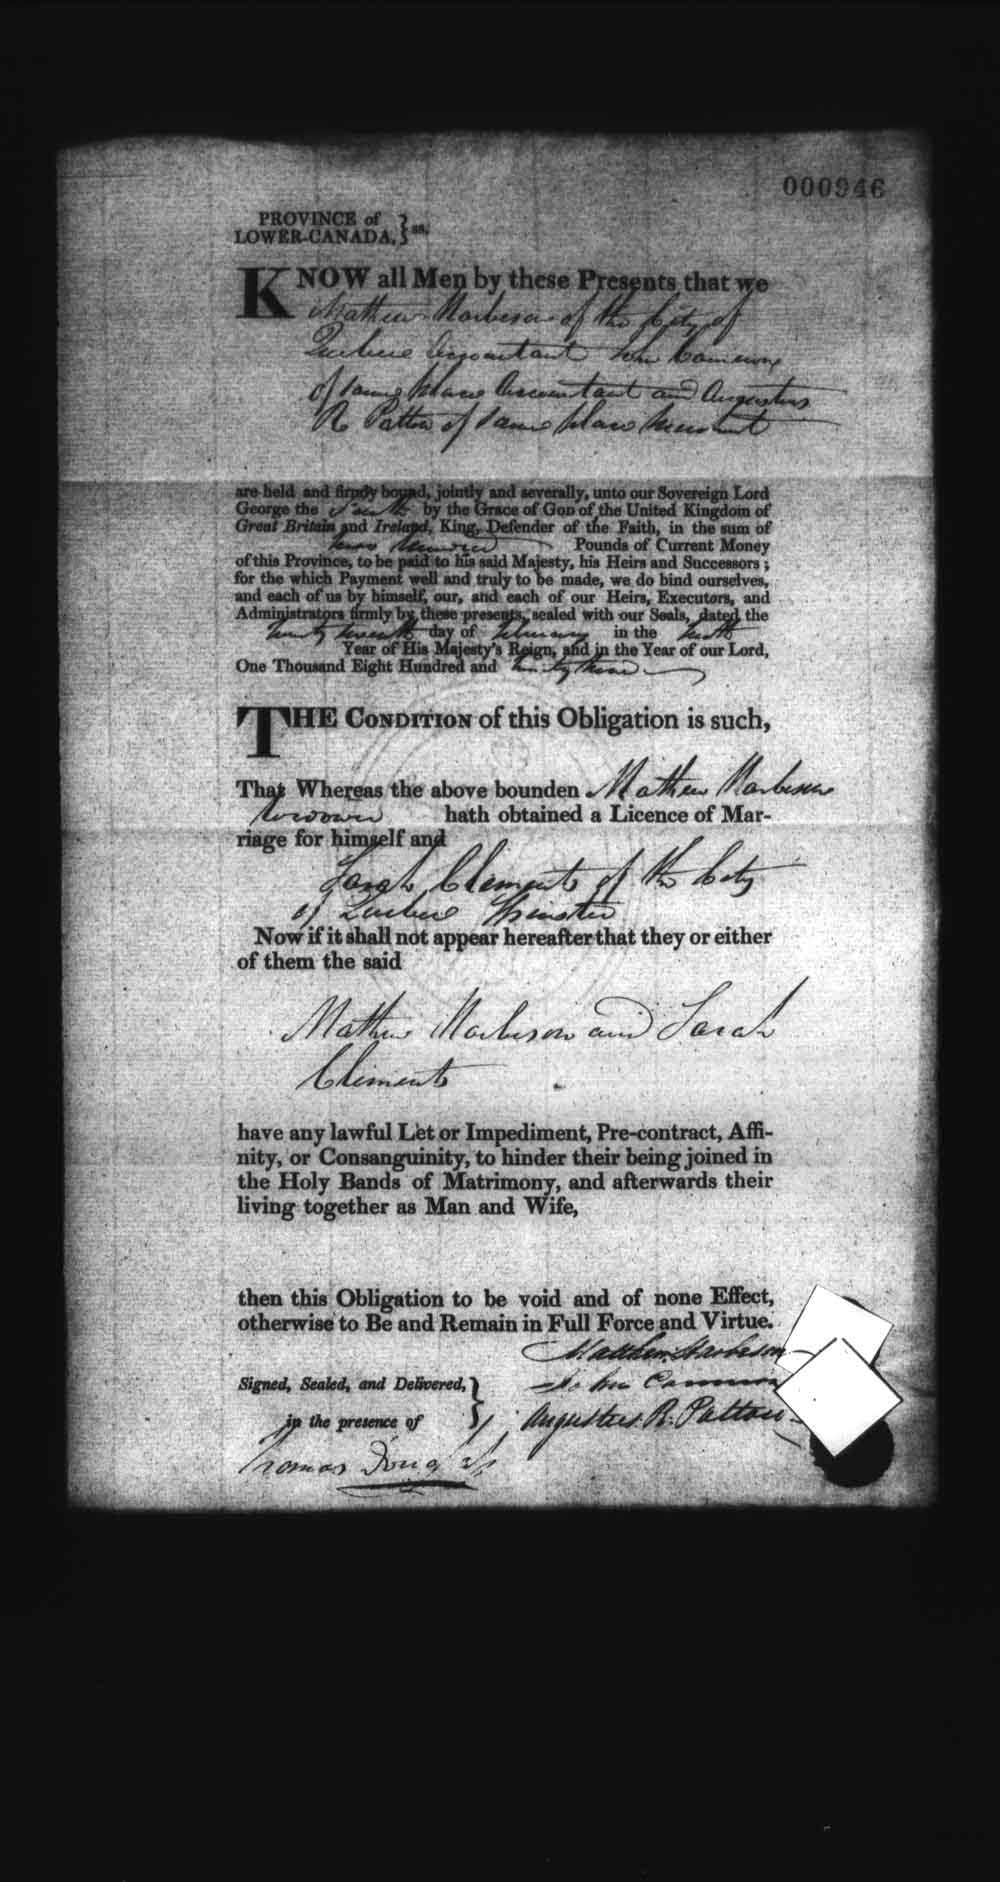 000946
PROVINCE of
LOWER-CANADA, } ss.
KNOW all Men by these Presents that we
Mathew Harbeson of the City of
Quebec Accountant John Cameron
of same place Accountant and Augustus
R Patton of same place
are held and firmly bound, jointly and severally, unto our Sovereign Lord
George the Fourth by the Grace of GOD of the United Kingdom of
Great Britain and Ireland, King, Defender of the Faith, in the sum of
Two Hundred Pounds of Current Money
of this Province, to be paid to his said Majesty, his Heirs and Successors;
for the which Payment well and truly to be made, we do bind ourselves,
and each of us by himself, our, and each of our Heirs, Executors, and
Administrators firmly by these presents, sealed with our Seals, dated the
day of February in the
Year of His Majesty's Reign, and in the Year of our Lord,
One Thousand Eight Hundred and
THE CONDITION of this Obligation is such,
That Whereas the above bounden Mathew Harbeson
Widower hath obtained a Licence of Mar-
riage for himself and
Sarah Clements of the City
of Quebec Spinster
Now if it shall not appear hereafter that they or either
of them the said
Mathew Harbeson and Sarah
Clements
have any lawful Let or Impediment, Pre-contract, Affi-
nity, or Consanguinity, to hinder their being joined in
the Holy Bands of Matrimony, and afterwards their
living together as Man and Wife,
then this Obligation to be void and of none Effect,
otherwise to Be and Remain in Full Force and Virtue.
Matthew Harbeson
Signed, Sealed, and Delivered, } John Cameron
in the presence of Augustus R. Patton
Thomas Douglass